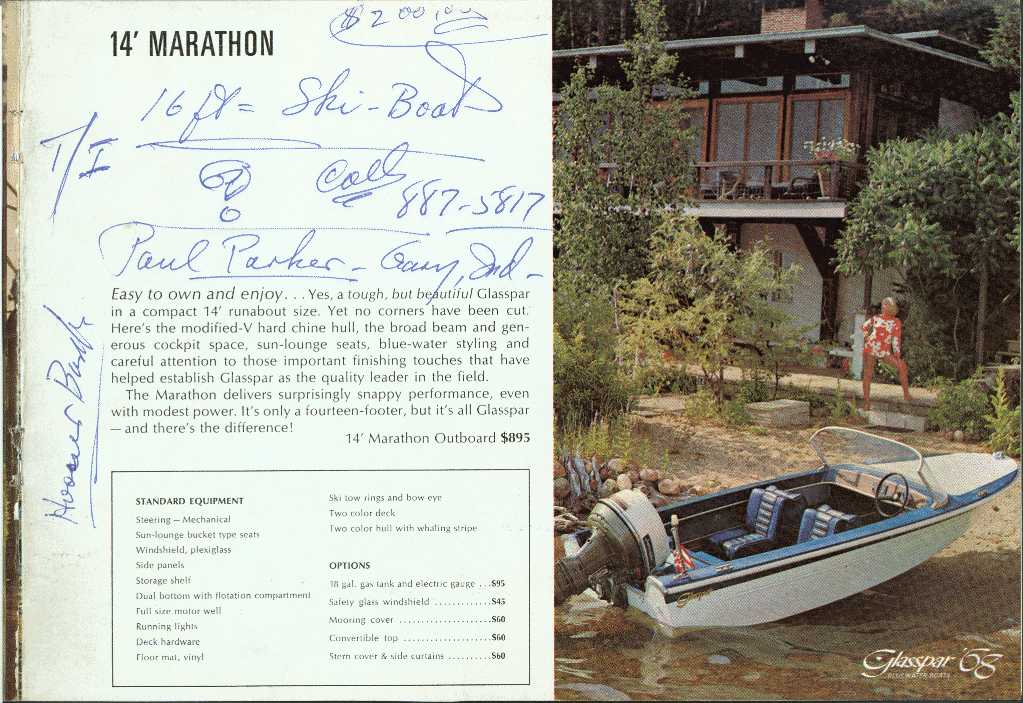 14' MARATHON
$200.00
16 ft = Ski-Boat
T/I
Call
887-5817
Paul Parker - Gary, Ind -
Easy to own and enjoy... Yes, a tough, but beautiful Glasspar
in a compact 14' runabout size. Yet no corners have been cut.
Here's the modified-V hard chine hull, the broad beam and gen-
erous cockpit space, sun-lounge seats, blue-water styling and
careful attention to those important finishing touches that have
helped establish Glasspar as the quality leader in the field.
The Marathon delivers surprisingly snappy performance, even
with modest power. It's only a fourteen-footer, but it's all Glasspar
— and there's the difference!
14' Marathon Outboard $895
STANDARD EQUIPMENT
Steering — Mechanical
Sun-lounge bucket type seats
Windshield, plexiglass
Side panels
Storage shelf
Dual bottom with flotation compartment
Full size motor well
Running lights
Deck hardware
Floor mat, vinyl
Ski tow rings and bow eye
Two color deck
Two color hull with whaling stripe
OPTIONS
18 gal. gas tank and electric gauge ...$95
Safety glass windshield ............$45
Mooring cover .....................$60
Convertible top ...................$60
Stern cover & side curtains ..........$60
Glasspar '68
BLUE WATER BOATS